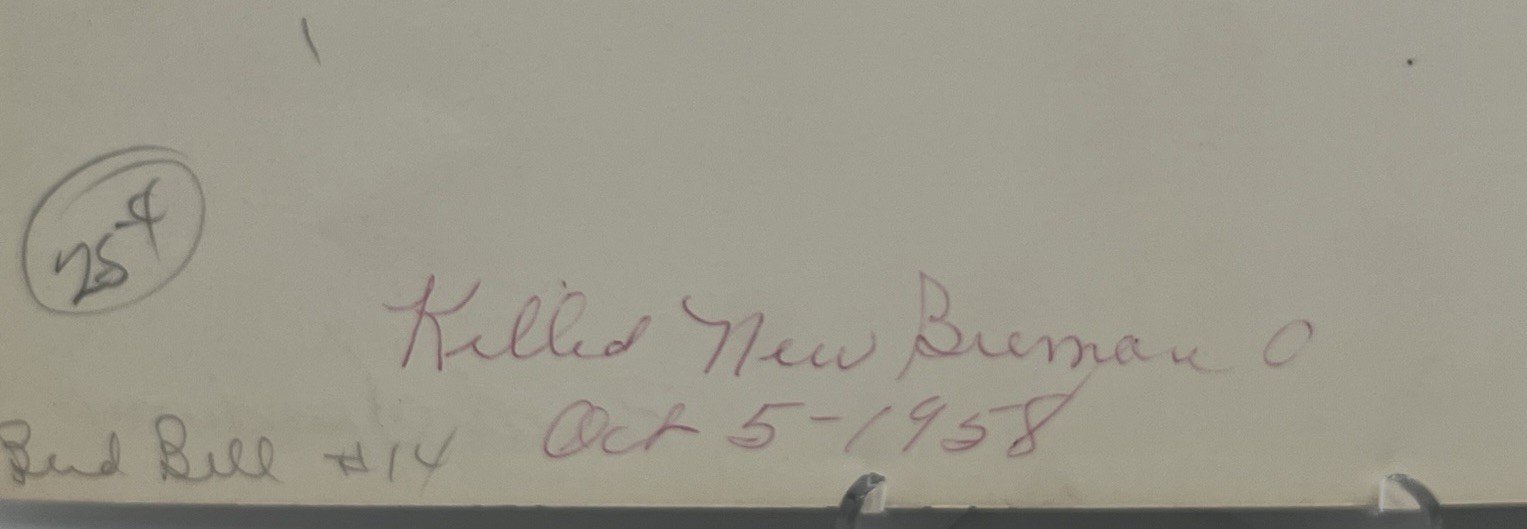 25¢
Killed New Breman O
Oct 5-1958
Bud Bell #14